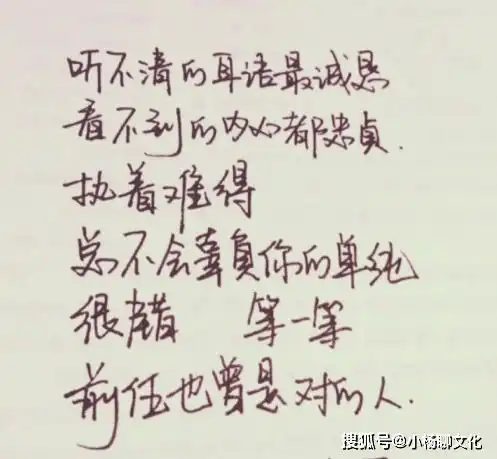 听不清的耳语最诚恳
看不到的内心都忠贞.
执着难得
总不会辜负你的单纯
很难错 等一等
前任也曾是对的人.
搜狐号@小杨聊文化